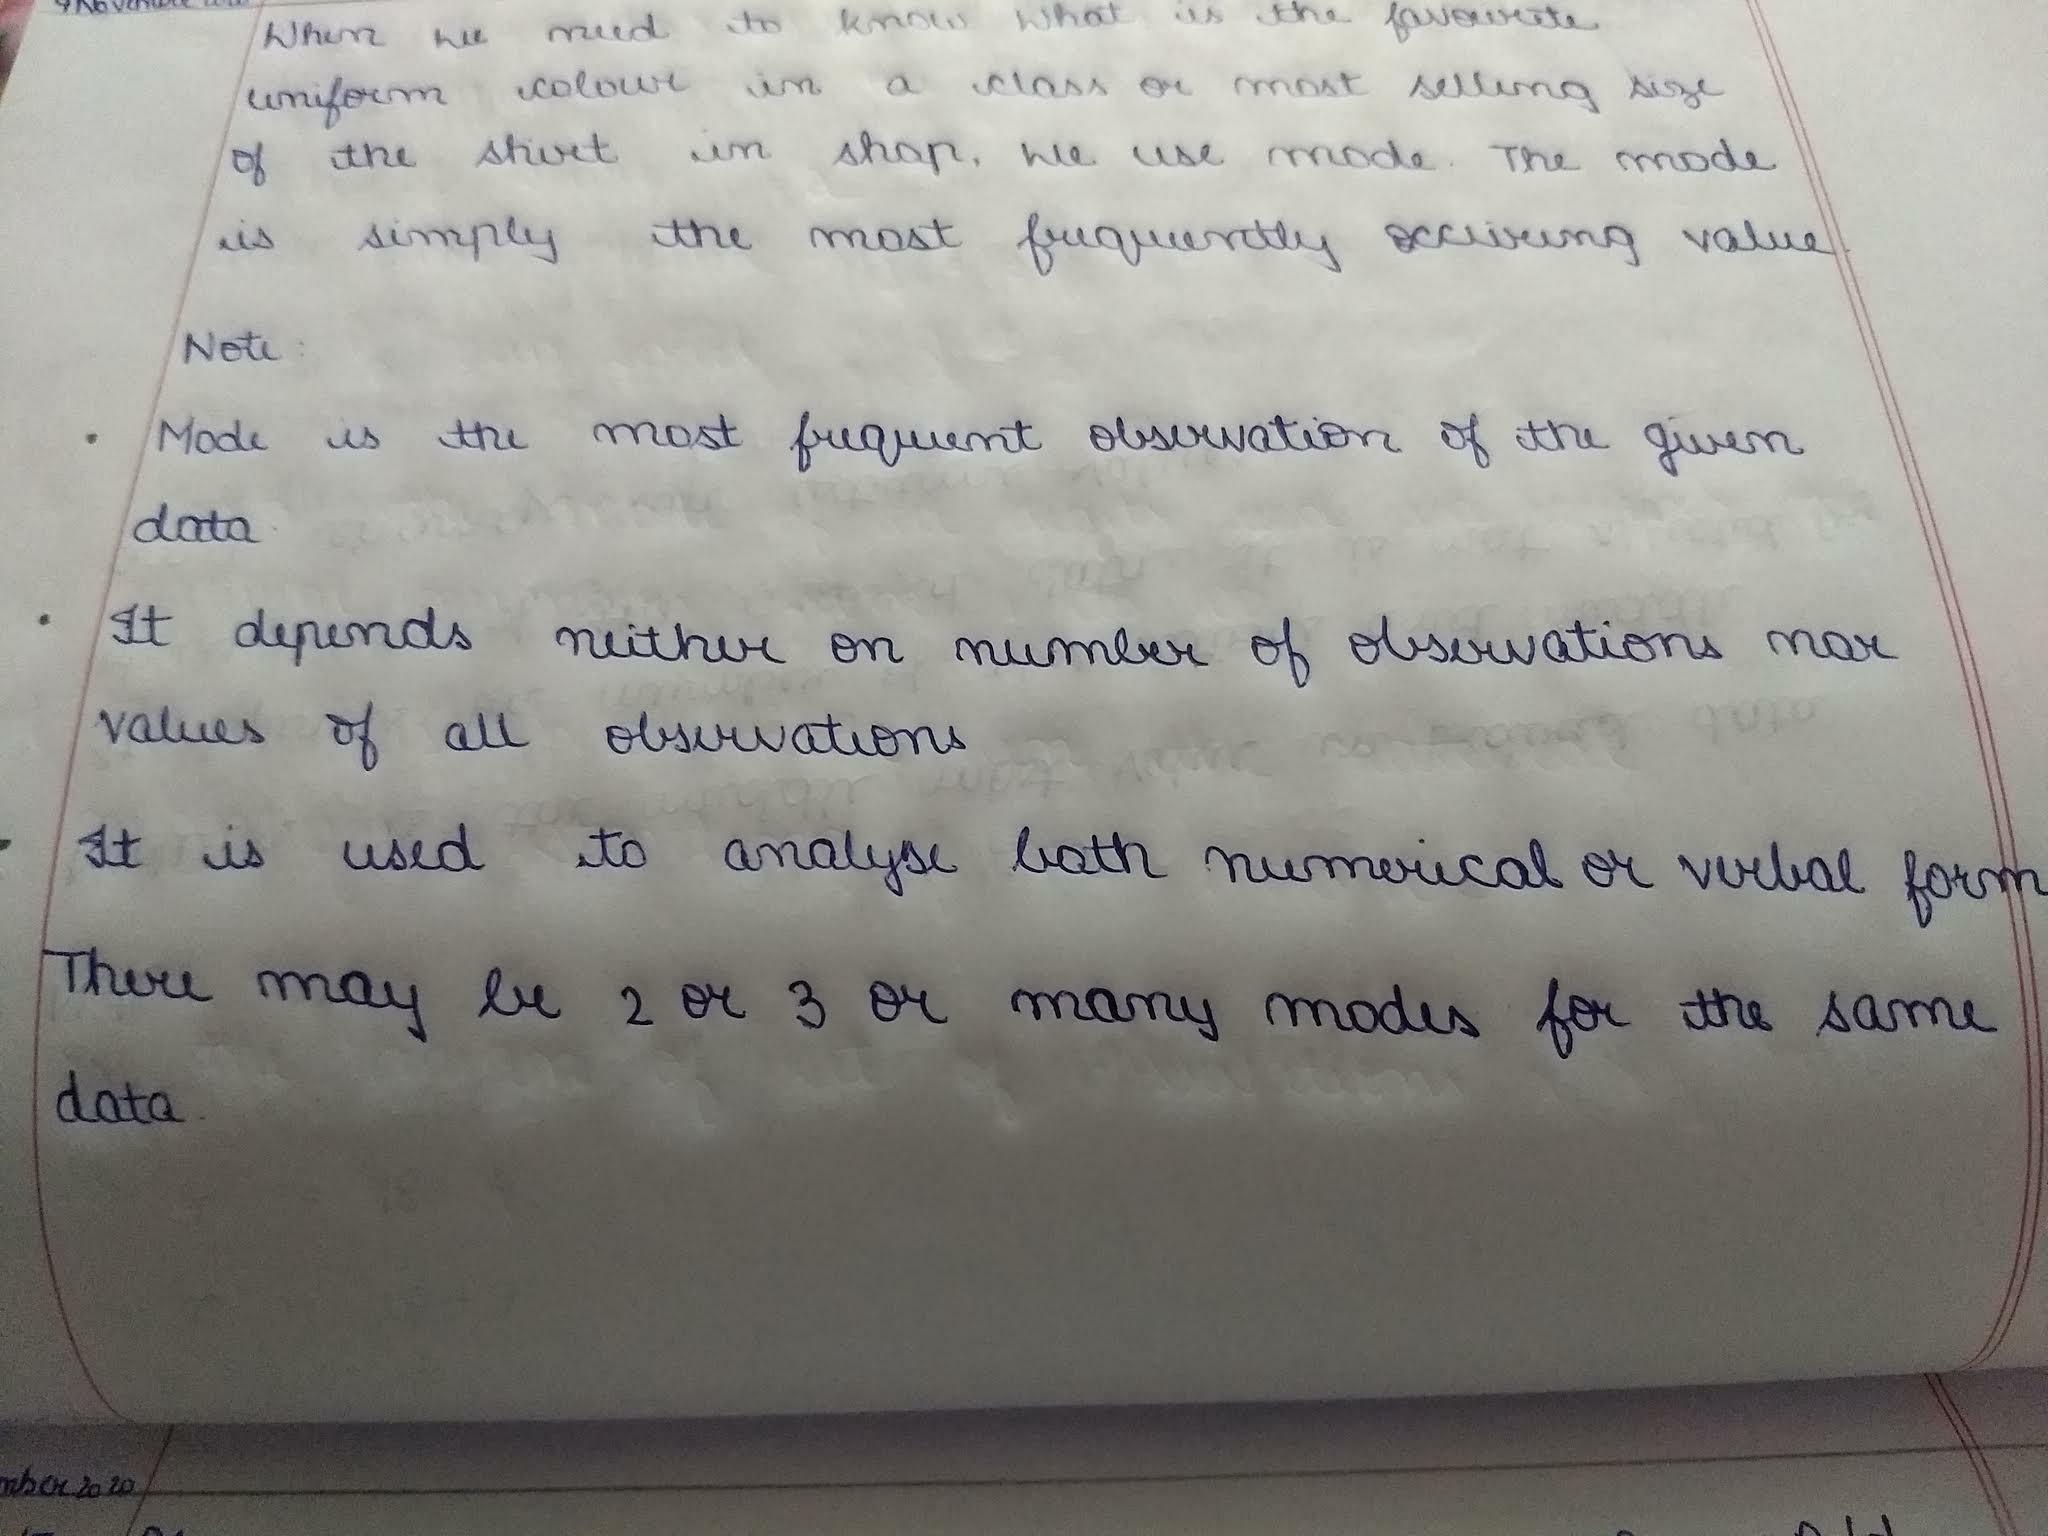 When we need to know what is the favourite
uniform colour in a class or most selling size
of the shirt in shop, we use mode. The mode
is simply the most frequently occuring value.
Note:
• Mode is the most frequent observation of the given
data.
• It depends neither on number of observations nor
values of all observations
• It is used to analyse both numerical or verbal form
There may be 2 or 3 or many modes for the same
data.
mber 2020